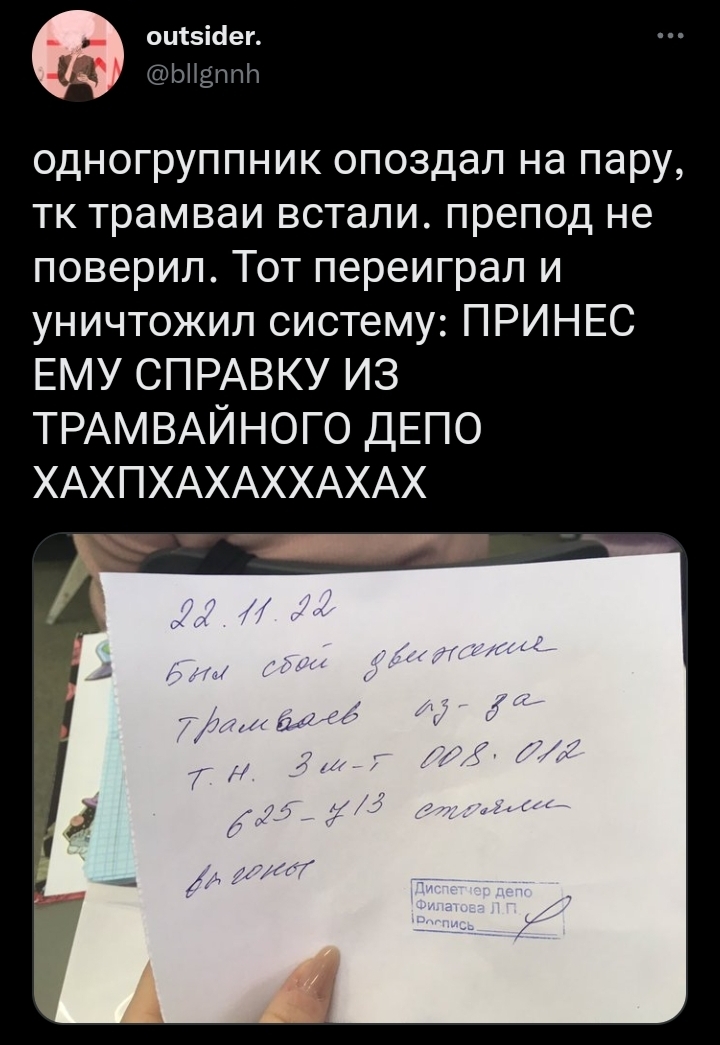 outsider.
@bllgnnh
одногруппник опоздал на пару,
тк трамваи встали. препод не
поверил. Тот переиграл и
уничтожил систему: ПРИНЕС
ЕМУ СПРАВКУ ИЗ
ТРАМВАЙНОГО ДЕПО
ХАХПХАХАХХАХАХ
22.11.22
Был сбой движение
трамваев из-за
т.н. 3 м-т 008.012
625-713 стояли
вагоны
Диспетчер депо
Филатова Л.П.
Роспись